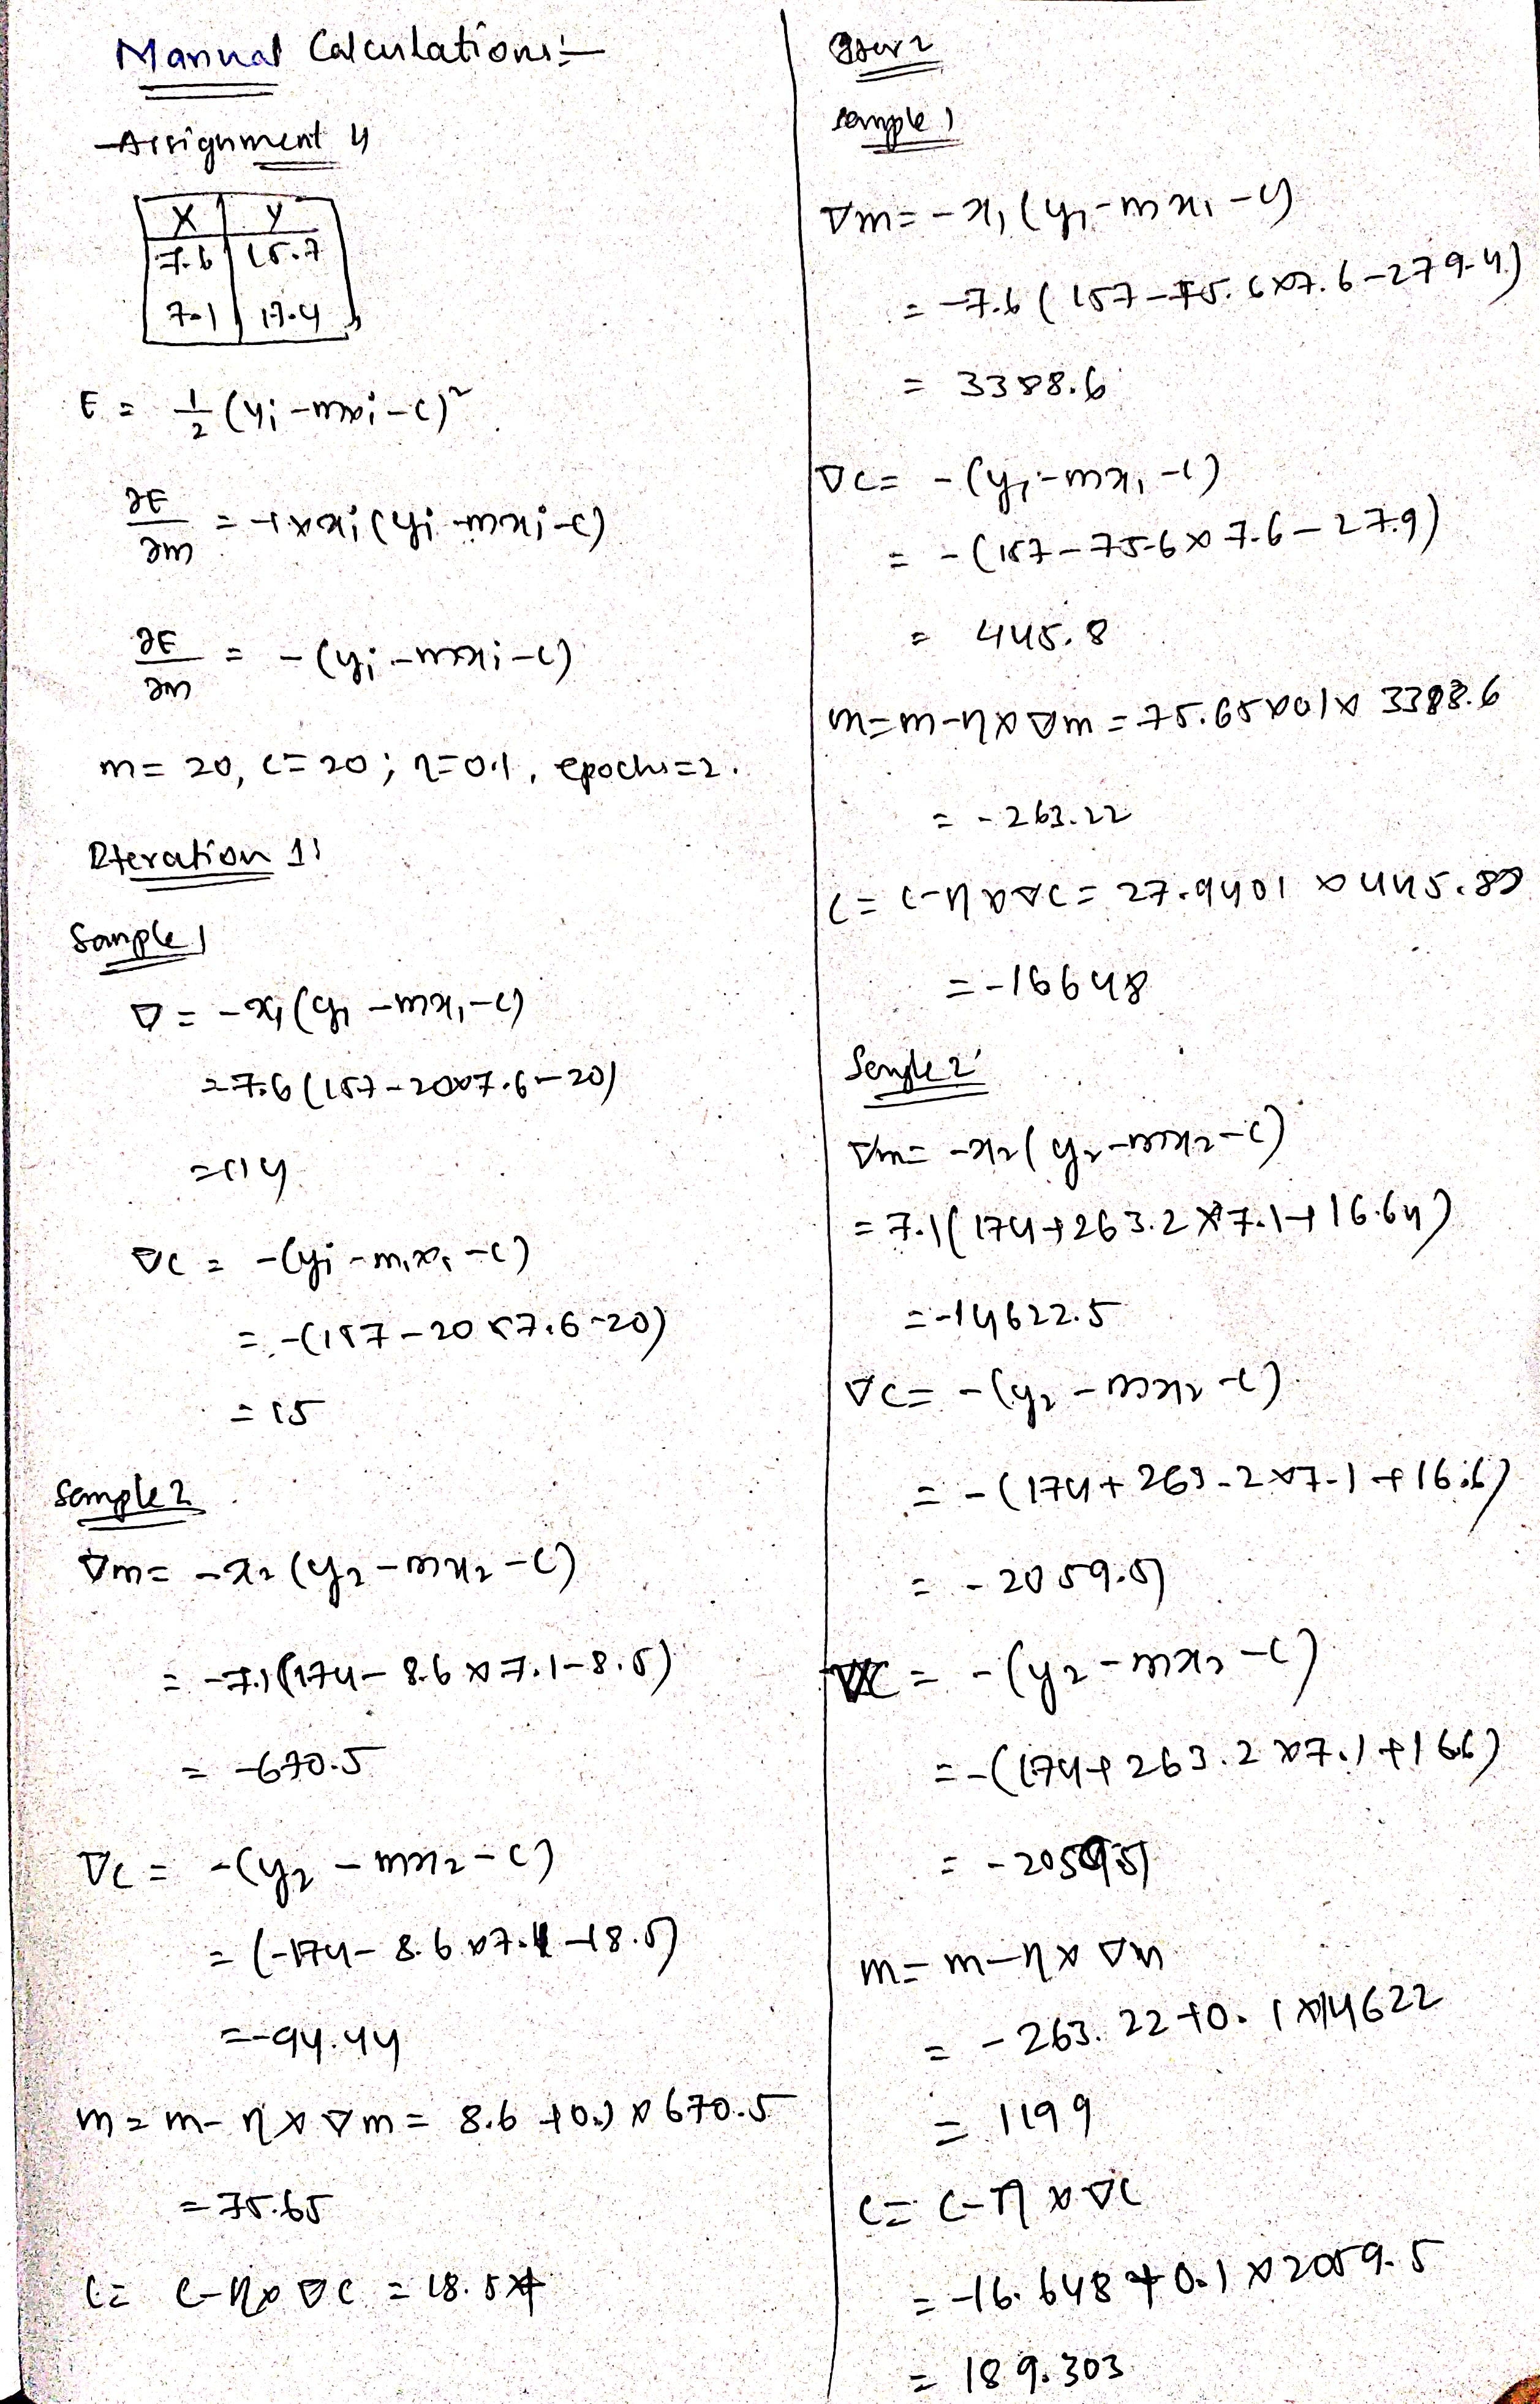 Manual Calculations:-
Assignment 4
X Y
7.6 15.7
7.1 17.4
E = 1/2 (yi - mxi - c)²
∂E/∂m = -1 × xi (yi - mxi - c)
∂E/∂m = - (yi - mxi - c)
m = 20, c = 20; η = 0.1, epochs = 2.
Iteration 1:
Sample 1
∇ = -x1 (y1 - mx1 - c)
= 7.6 (157 - 20×7.6 - 20)
= 114
∇c = -(yi - m1x1 - c)
= -(157 - 20×7.6 - 20)
= 15
Sample 2
∇m = -x2 (y2 - mx2 - c)
= -7.1 (174 - 8.6 × 7.1 - 8.5)
= -670.5
∇c = -(y2 - mx2 - c)
= (-174 - 8.6 × 7.1 - 18.5)
= -94.44
m = m - η × ∇m = 8.6 + 0.1 × 670.5
= 75.65
c = c - η × ∇c = 18.5
Iter 2
Sample 1
∇m = -x1 (y1 - mx1 - c)
= -7.6 (157 - 75.6×7.6 - 279.4)
= 3388.6
∇c = - (y1 - mx1 - c)
= - (157 - 75.6 × 7.6 - 27.9)
= 445.8
m = m - η × ∇m = 75.65×01× 3388.6
= - 263.22
c = c - η × ∇c = 27.9401 × 445.89
= - 16648
Sample 2
∇m = -x2 (y2 - mx2 - c)
= 7.1 (174 + 263.2 × 7.1 + 16.64)
= -14622.5
∇c = - (y2 - mx2 - c)
= - (174 + 263.2 × 7.1 + 16.6)
= - 2059.5
∇c = - (y2 - mx2 - c)
= - (174 + 263.2 × 7.1 + 166)
= - 2059.5
m = m - η × ∇m
= - 263.22 + 0.1 × 14622
= 1199
c = c - η × ∇c
= -16.648 + 0.1 × 2059.5
= 189.303